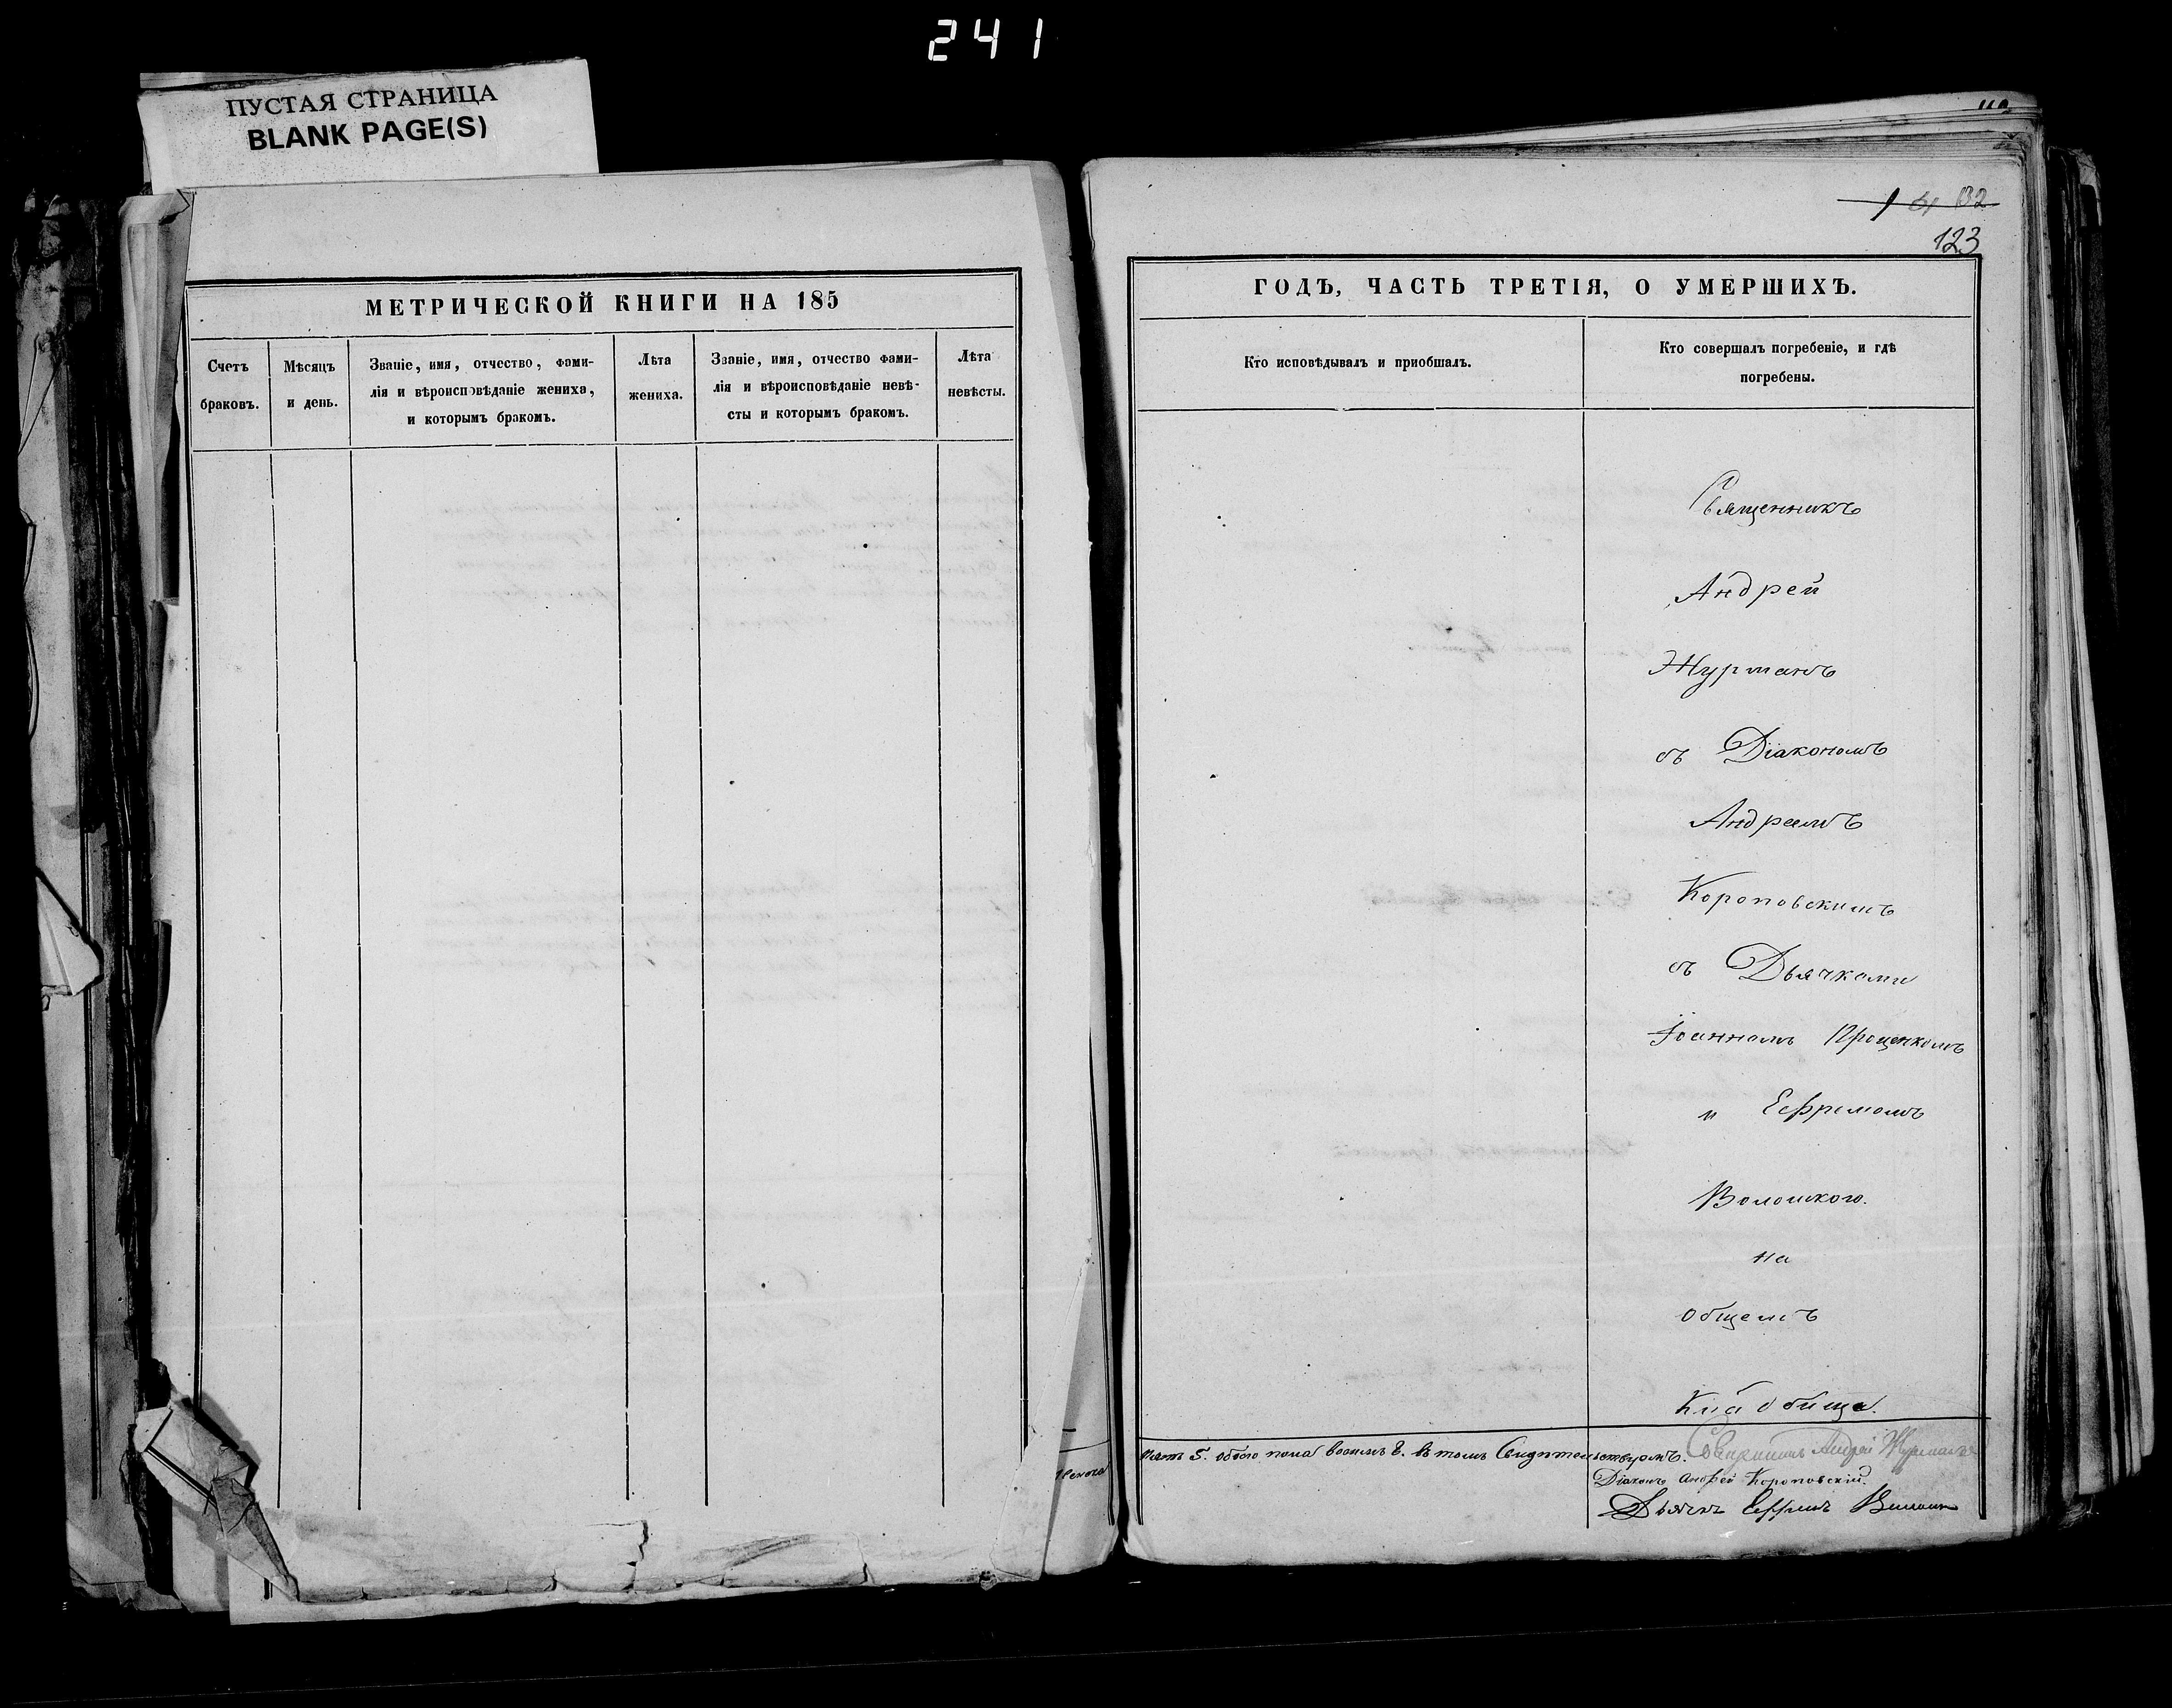 241
ПУСТАЯ СТРАНИЦА
BLANK PAGE(S)
МЕТРИЧЕСКОЙ КНИГИ НА 185
Счетъ
браковъ.
Мѣсяцъ
и день.
Званіе, имя, отчество, фами-
лія и вѣроисповѣданіе жениха,
и которымъ бракомъ.
Лѣта
жениха.
Званіе, имя, отчество фами-
лія и вѣроисповѣданіе невѣ-
сты и которымъ бракомъ.
Лѣта
невѣсты.
132
123
ГОДЪ, ЧАСТЬ ТРЕТІЯ, О УМЕРШИХЪ.
Кто исповѣдывалъ и приобщалъ.
Кто совершалъ погребеніе, и гдѣ
погребены.
Священникъ
Андрей
Журманъ
съ Діакономъ
Андреемъ
Короповскимъ
съ Дьячками
Іоанномъ Проценкомъ
и Ефремомъ
на
общемъ
Кладбище.
пять 5. обоего пола восемь 8. въ томъ Свидѣтельствуемъ. Священникъ Андрей Журманъ
Діаконъ Андрей Короповскій.
Дьячекъ Ефремъ